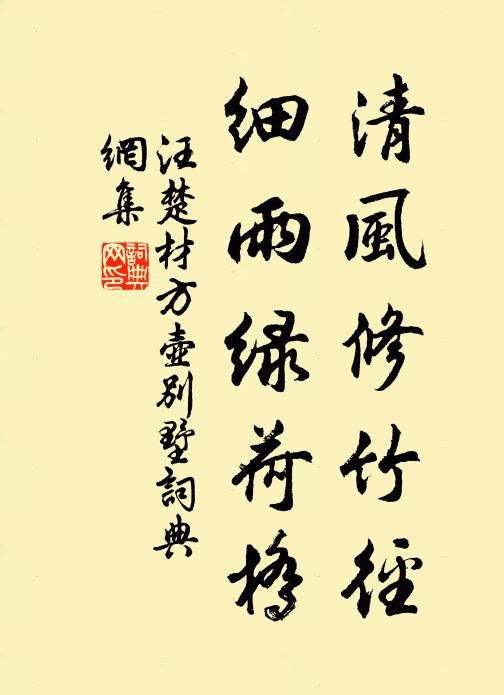 清風修竹徑
細雨緑荷橋
汪楚材方壺別墅詞典
網集
詞典
网印